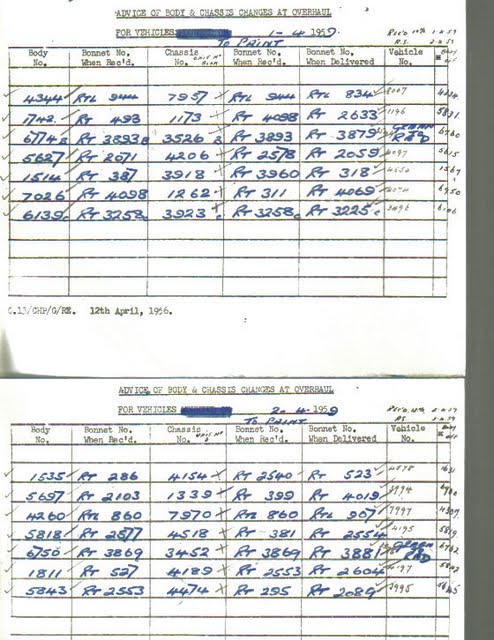 ADVICE OF BODY & CHASSIS CHANGES AT OVERHAUL
FOR VEHICLES 1-4 1959
TO PAINT
Body No. Bonnet No. When Rec'd. Chassis No. Bonnet No. When Rec'd. Bonnet No. When Delivered Vehicle No.
4344 RTL 944 7957 RTL 944 RTL 834 8007
1742 RT 493 1173 RT 4098 RT 2633 1196 5831
6774 RT 3893 3526 RT 3893 RT 3879 GREEN RAD
5627 RT 2071 4206 RT 2578 RT 2059
1514 RT 387 3918 RT 3960 RT 318
7026 RT 4098 1262 RT 311 RT 4069
6139 RT 3258 3923 RT 3258 RT 3225
C.13/CHP/G/RE. 12th April, 1956.
ADVICE OF BODY & CHASSIS CHANGES AT OVERHAUL
FOR VEHICLES 2-4-1959
TO PAINT
Body No. Bonnet No. When Rec'd. Chassis No. Bonnet No. When Rec'd. Bonnet No. When Delivered Vehicle No.
1535 RT 286 4154 RT 2540 RT 523
5697 RT 2103 1339 RT 399 RT 4019
4260 RTL 860 7970 RTL 860 RTL 907 7997
5818 RT 2677 4518 RT 381 RT 2554 4195
6756 RT 3869 3452 RT 3869 RT 3881 GREEN RAD
1811 RT 527 4189 RT 2553 RT 2604 4197
5843 RT 2553 4474 RT 295 RT 2089 3995